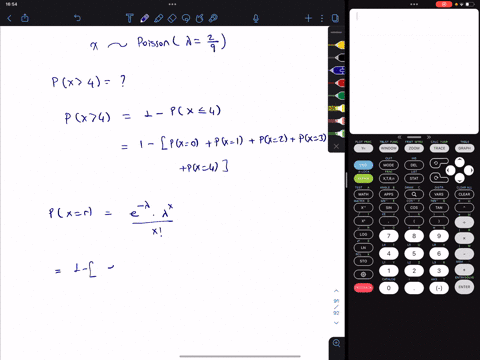 16:54
x ~ Poisson(λ = 2/9)
P(x>4) = ?
P(x>4) = 1 - P(x ≤ 4)
= 1 - [P(x=0) + P(x=1) + P(x=2) + P(x=3)
+P(x=4)]
P(x=r) = e^-λ . λ^x / x!
= 1-[
Y=
WINDOW
ZOOM
TRACE
GRAPH
2ND
MODE
DEL
ALPHA
X,T,θ,n
STAT
MATH
APPS
PRGM
VARS
CLEAR
SIN
COS
TAN
LOG
7
8
9
LN
4
5
6
STO
1
2
3
0
.
(-)
ENTER